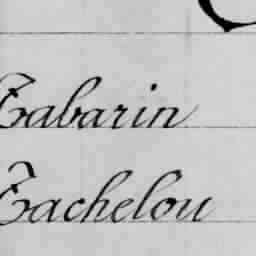 Tabarin
Tachelou